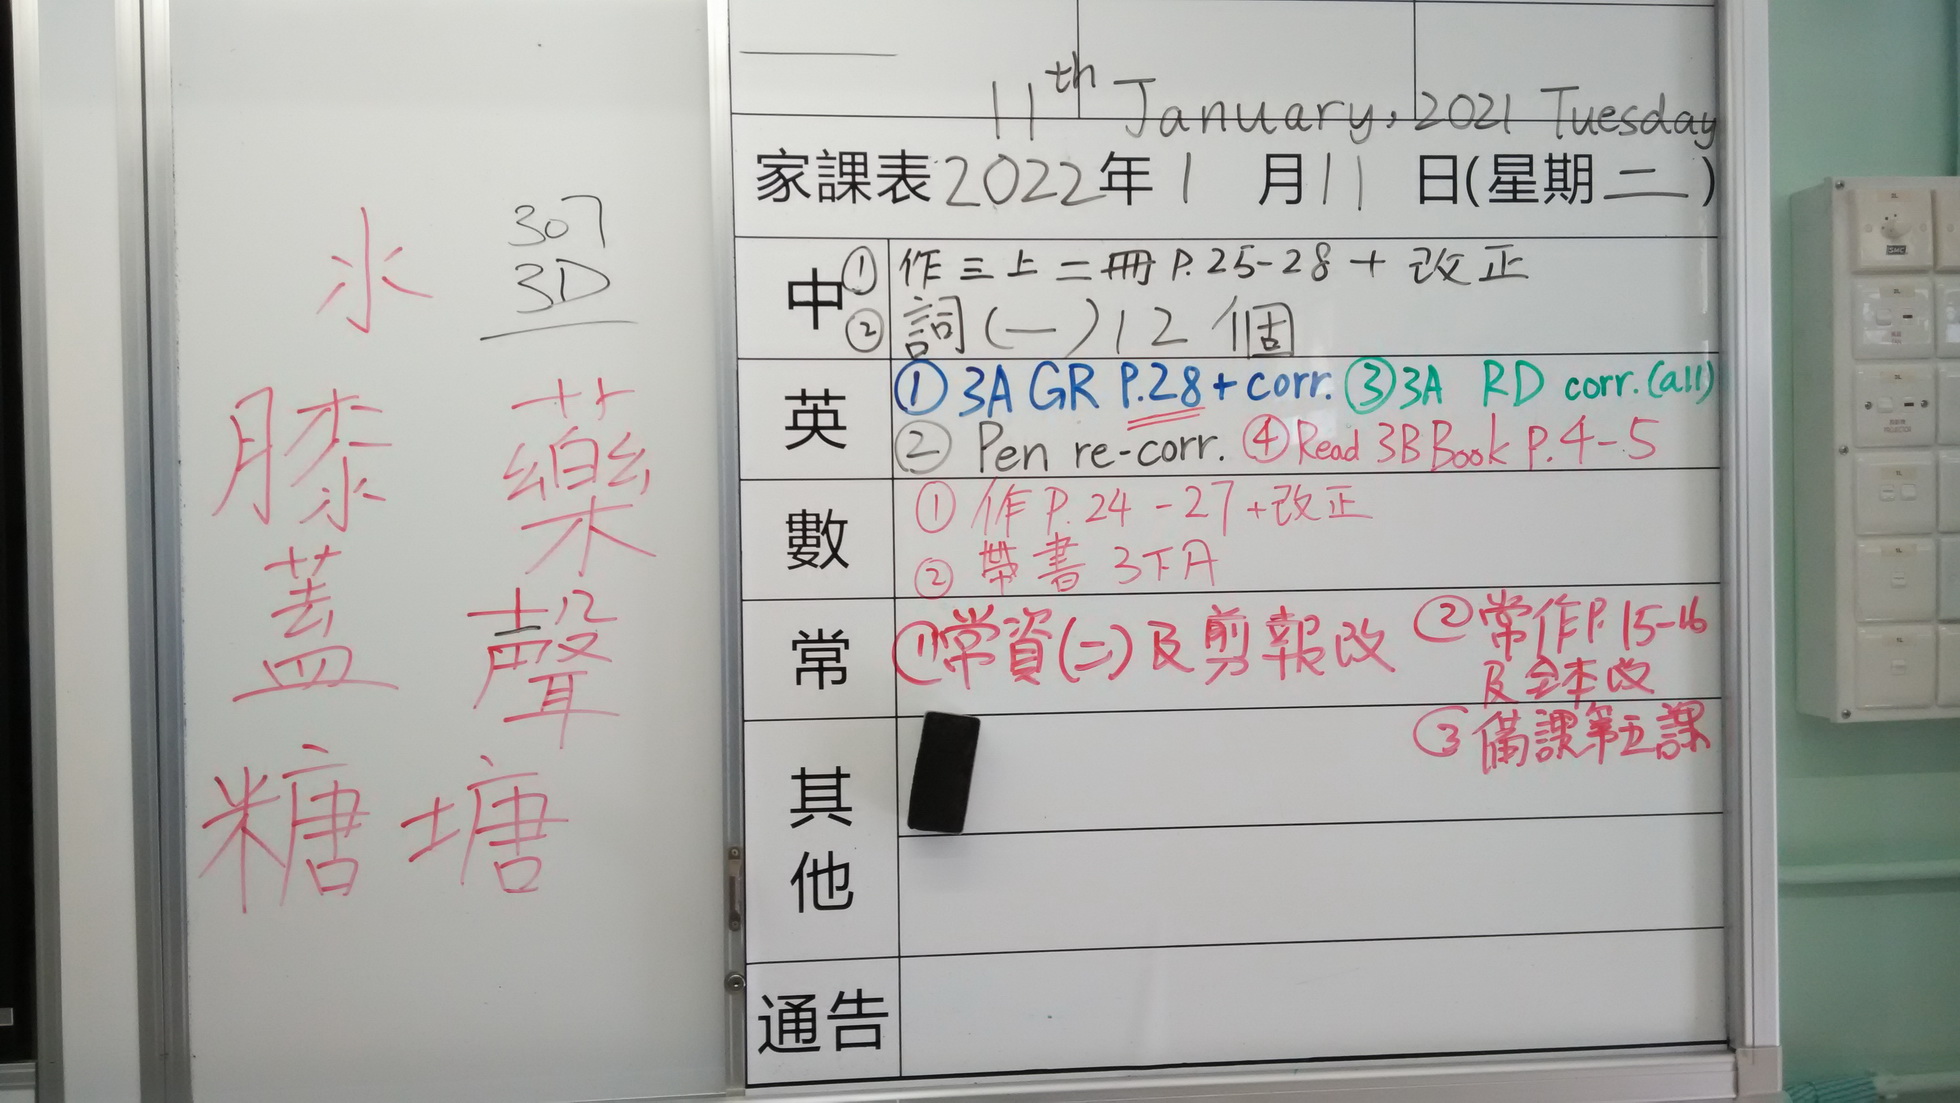 307
3D
氺
膝 藥
蓋 聲
糖 塘
11th January, 2021 Tuesday
家課表2022年1月11日(星期二)
中 ① 作三上二冊 P.25-28 + 改正
② 詞(一)12個
英 ① 3A GR P.28 + corr. ③ 3A RD corr. (all)
② Pen re-corr. ④ Read 3B Book P.4-5
數 ① 作 P.24-27 + 改正
② 帶書 3下A
常 ① 常資(二)及剪報改 ② 常作P.15-16
及全本改
③ 備課第五課
其他
通告